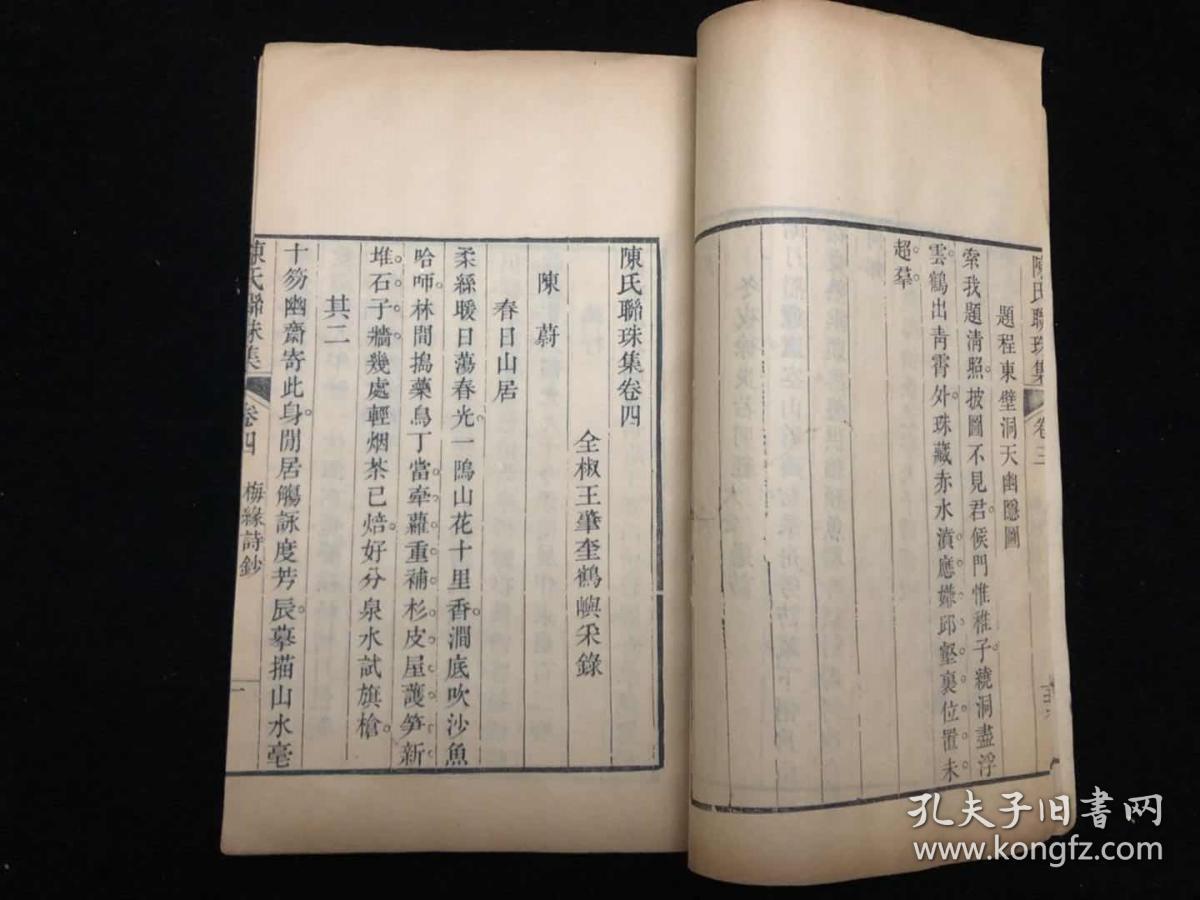 陳氏聯珠集
卷三
題程東壁洞天幽隱圖
索我題淸照披圖不見君候門惟稚子繞洞盡浮
雲鶴出靑霄外珠藏赤水濆應嫌邱壑裏位置未
超羣
陳氏聯珠集卷四
全椒王肇奎鶴嶼釆錄
陳蔚
春日山居
柔絲暖日蕩春光一隖山花十里香澗底吹沙魚
哈㖷林間搗藥鳥丁當牽蘿重補杉皮屋護笋新
堆石子牆幾處輕烟茶已焙好分泉水試旗槍
其二
十笏幽齋寄此身閒居觴詠度芳辰摹描山水毫
陳氏聯珠集
卷四
梅緣詩鈔
一
孔夫子旧書网
www.kongfz.com